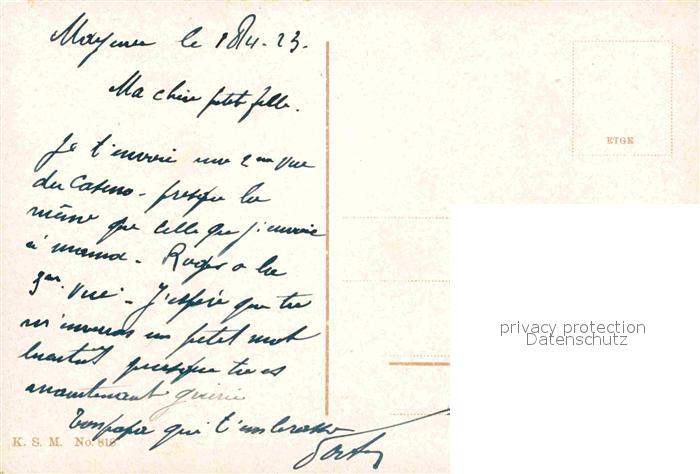 Mayence le 18/4-23.
Ma chère petit fille.
Je t'envoie une 2eme vue
du Casino - presque la
même que celle que j'envoie
à mama - Roger a la
3eme vue - J'espère que tu
m'enverras un petit mot
bientôt puisque tu es
maintenant guérie
Ton papa qui t'embrasse
ETGE
K. S. M. No. 816
privacy protection
Datenschutz